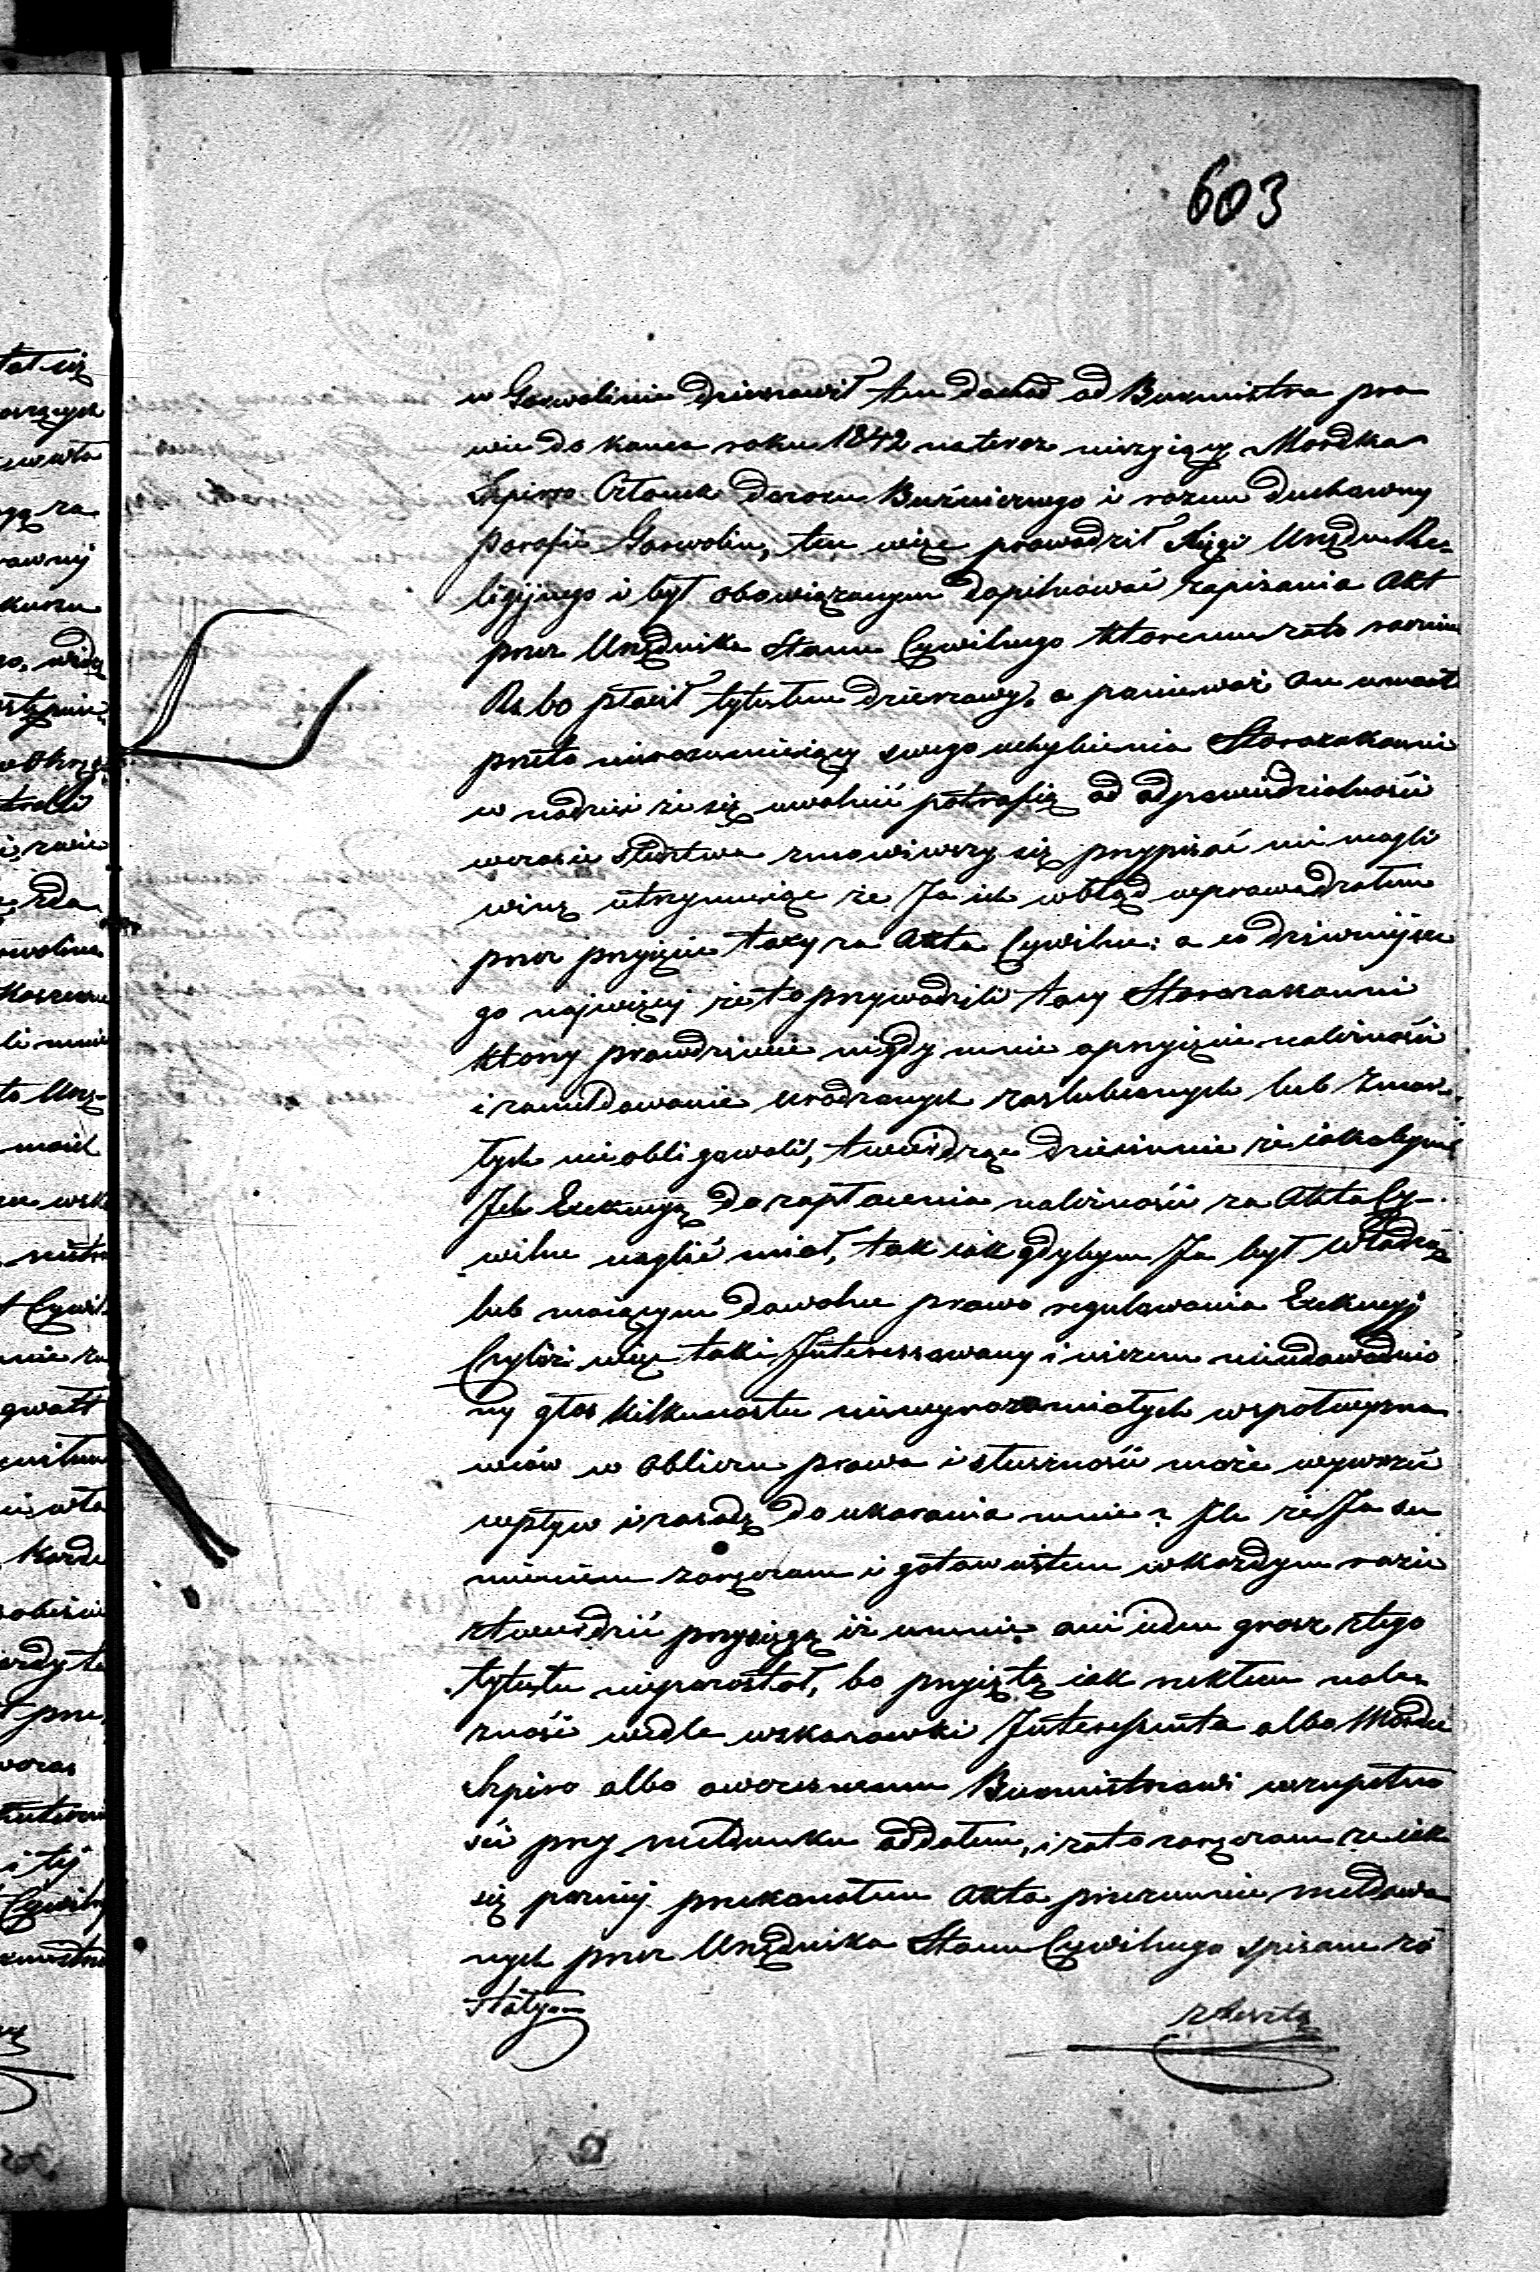 603
w Garwolinie dzierzawił ten dochod od Burmistra pra
wie do konca roku 1842 na teraz nieżyiący Mordka
Szpiro Członek Dozoru Bużniczego i razem duchowny
Parafii Garwolin, ten więc prowadził Xięgi Urzędu Re-
ligijnego i był obowiązanym dopilnować zapisania Akt
przez Urzędnika Stanu Cywilnego ktoremu zato rocznie
Rs bo płacił tytułem dzierzawy, a ponieważ on umarł
przeto nierozumieiący swego uchybienia Starozakonni
w nadziei że się uwolnić potrafią od odpowiedzialności
wczasie śledztwa zmowiwszy się przypisać mi mogli
winę utrzymuiąc że Ja ich wbłąd wprowadzałem
przez przyięcie taxy za Akta Cywilne: a co dziwnijsze
go najwięcej że to przywodzili tacy Starozakonni
ktorzy prawdziwie nigdy mnie oprzyięcie należności
i zameldowanie urodzonych zaslubionych lub zmar-
łych nieobligowali, twierdząc dziecinnie że iakobym
Ich Exekucyą do zapłacenia należności za Akta Cy-
wilne naglić miał, tak iak gdybym Ja był Władzą
lub maiącym dowolne prawo regulowania Exekucyj
Czyliż więc taki Interessowany i niczem nieudowodnio
ny głos kilkunastu niewyrozumiałych wspołwyzna
wców w obliczu prawa i słuszności może wywrzeć
wpływ i zasadę do ukarania mnie? Ile że Ja su
mieniem zaręczam i gotow iestem wkażdym razie
stwierdzić przysięgą iż umnie ani ieden grosz ztego
tytułu niepozostał, bo przyiętą iak rzekłem nale-
żność wedle wskazowki Interessenta albo Mordce
Szpiro albo owczesnemu Burmistrzowi wzupełno
ści przy meldunku oddałem, i zato zaręczam że iak
się pozniej przekonałem Akta przezemnie meldowa
nych przez Urzędnika Stanu Cywilnego spisane zo
stały